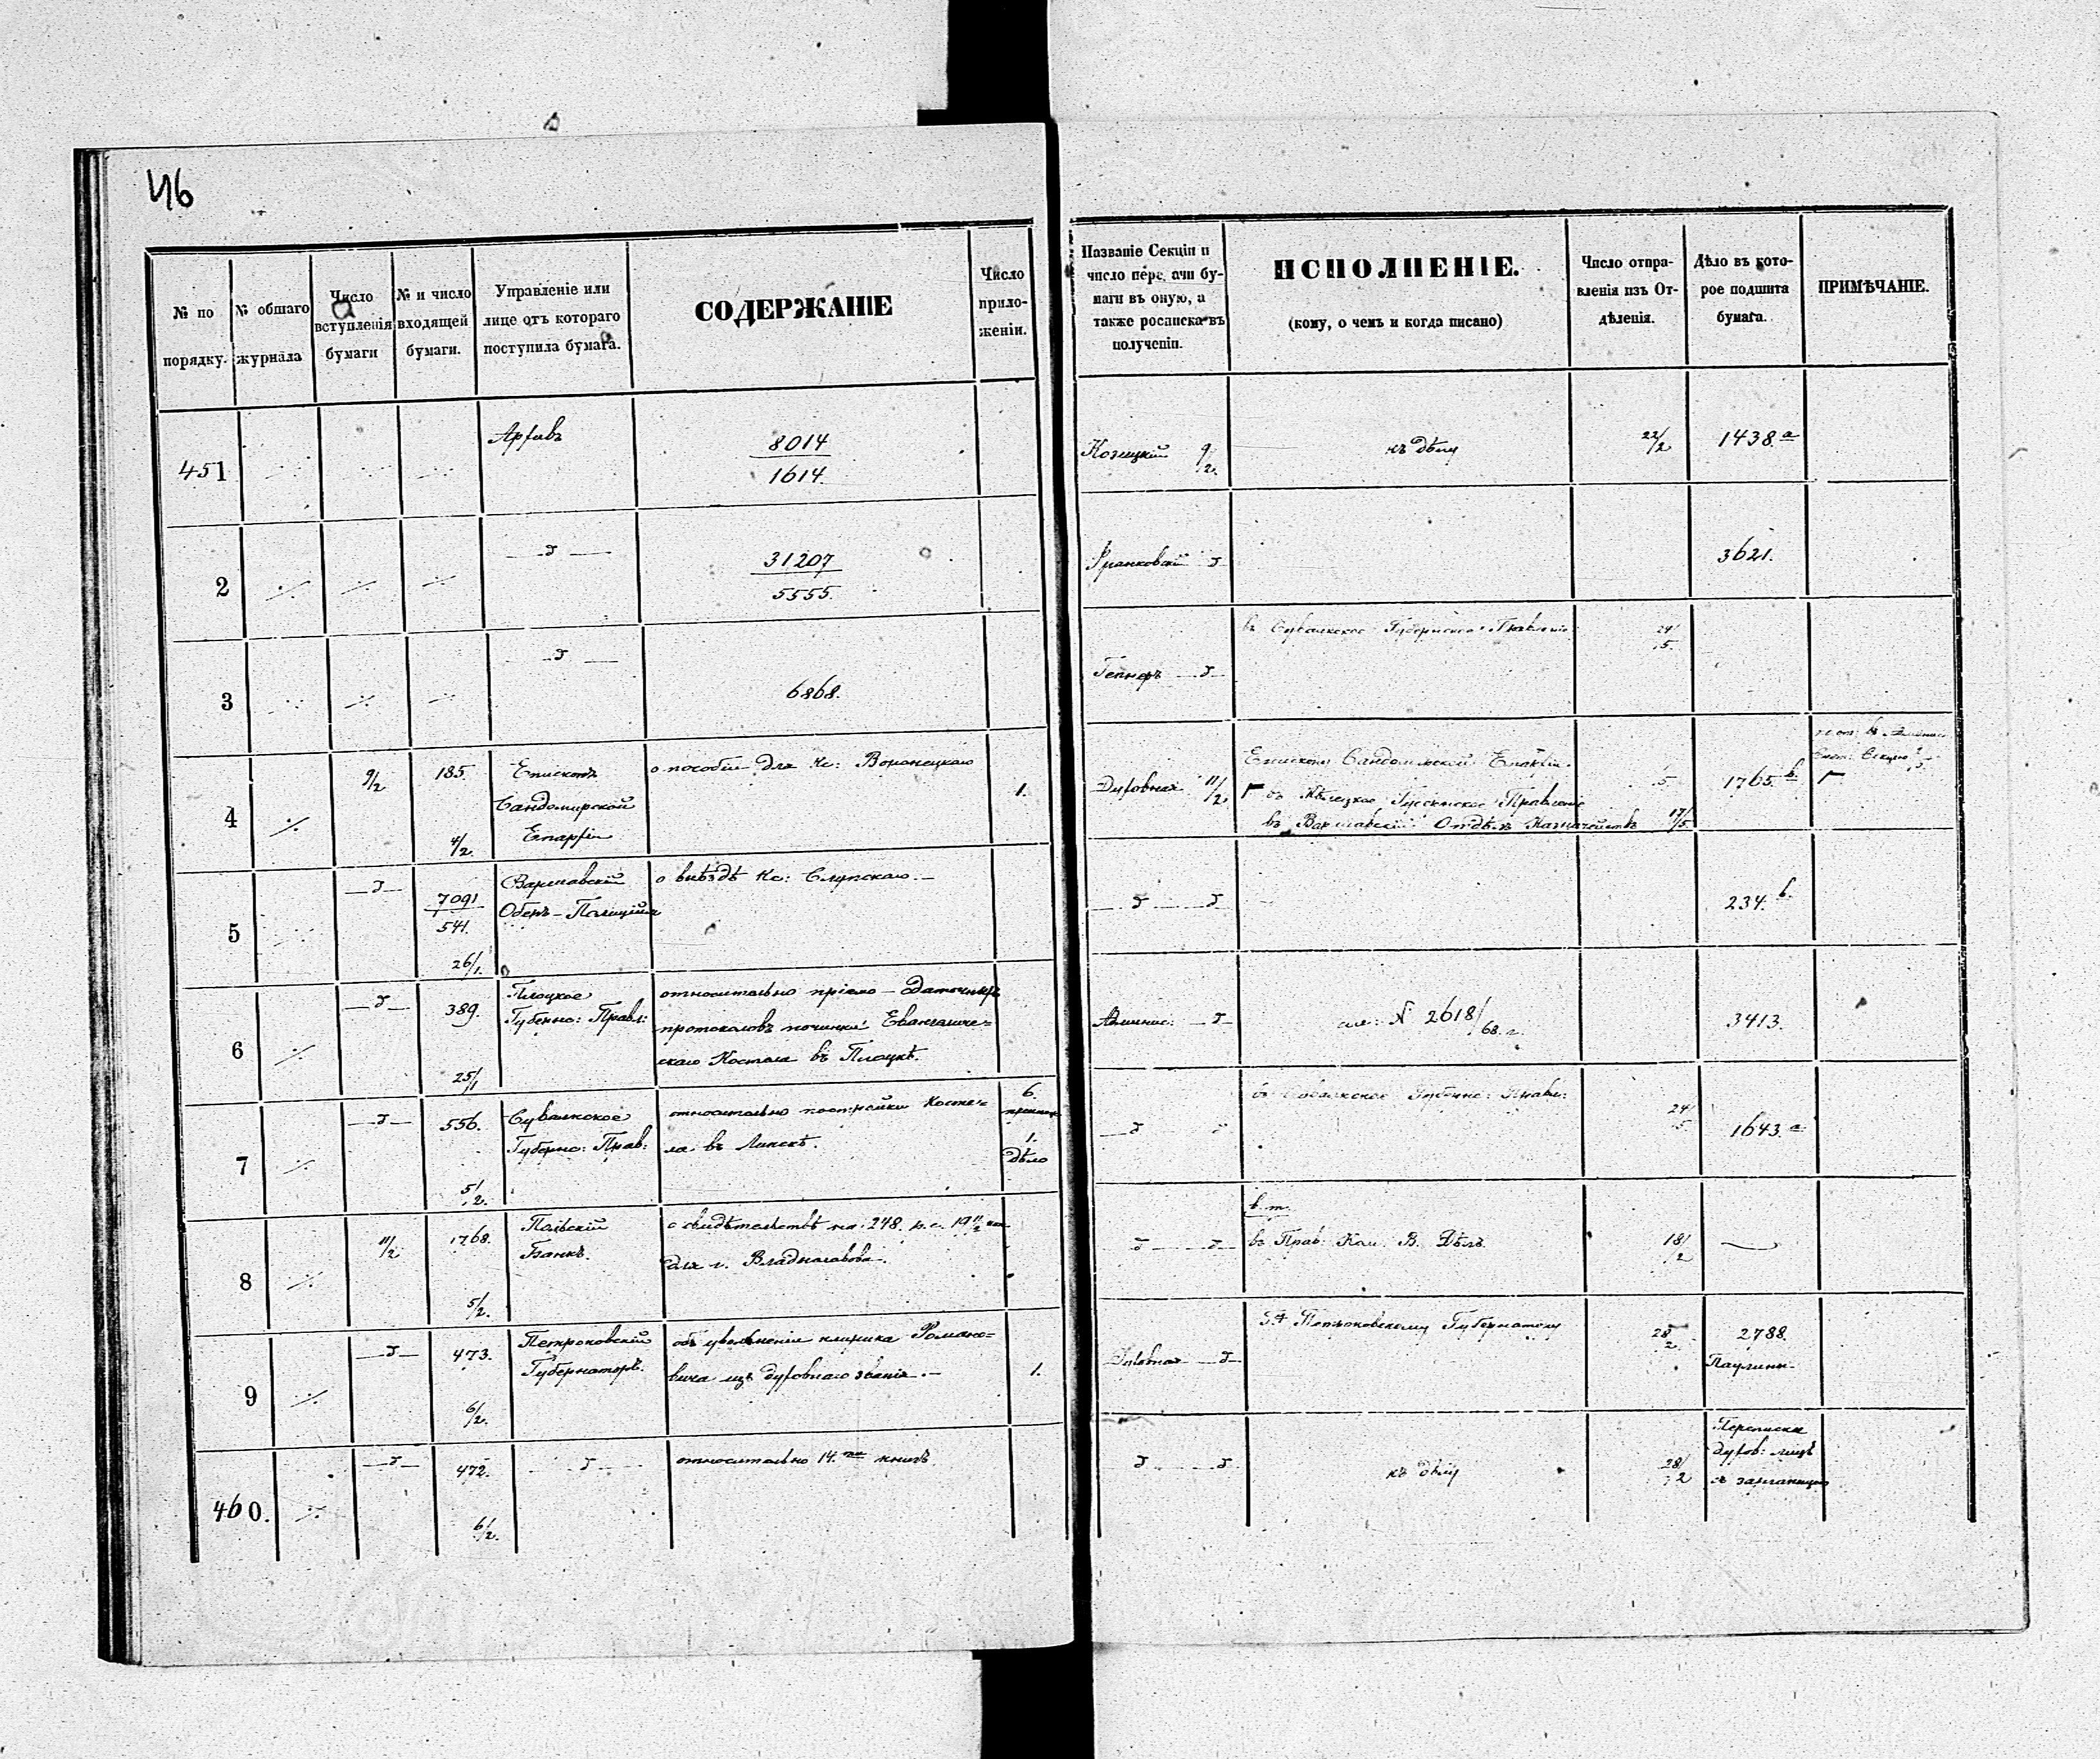 46
№ по порядку.
№ общаго журнала
Число вступленія бумаги
№ и число входящей бумаги.
Управленіе или лице отъ котораго поступила бумага.
СОДЕРЖАНІЕ
Число прило-
женіи.
Названіе Секціи и
число перед ачи бу-
маги въ оную, а
также росписка въ
полученіи.
ИСПОЛНЕНІЕ.
(кому, о чемъ и когда писано)
Число отпра-
вленія изъ От-
дѣленія.
Дѣло въ кото-
рое подшита
бумага.
ПРИМѢЧАНІЕ.
451
Архивъ
8014
1614.
9/2.
къ дѣлу
22/2
1438.a
2
31207
5555.
3621.
3
6868.
Гепнеръ
въ Сувалкское Губернское Правленіе
24/5.
4
9/2
185.
4/2.
Епископъ
Сандомирской
Епархіи
о пособіи для Кс: Воронецкаго
1.
Духовная 11/2.
Епископу Сандомирской Епархіи.
въ Кѣлецкое Губернское Правленіе
въ Варшавскій Отдѣлъ Казначейства 17/5.
1765.b.
5
7091
541.
26/1.
Варшавскій
Оберъ-Полиційм.
о выѣздѣ Кс: Слупскаго.-
234.b.
6
389.
25/1
Плоцкое
Губернс: Правл:
относительно пріемо-даточныхъ
протоколовъ починки Евангеличе=
скаго Костела въ Плоцкѣ.
Админис:
см: N 2618/68. г.
3413.
7
556.
5/2.
Сувалкское
Губернс: Прав:
относительно постройки Косте=
ла въ Липскѣ.
6.
1.
дѣло
въ Сувалкское Губернс: Правл:
24/5
1643.a
8
11/2
1768.
5/2.
Польскій
Банкъ.
о свидѣтельствѣ на 248. р. с. 19 1/2 коп
для г. Владиславова.
в. т.
въ Прав: Ком: В. Дѣлъ
18/2
9
473.
6/2.
Петроковскій
Губернаторъ.
объ увольненіи клирика Романо=
вича изъ духовнаго званія.-
1.
Духовная
Петроковскому Губернатору
28/2.
2788.
Паулины-
460.
472.
6/2.
относительно 14.ти книгъ
къ дѣлу
28/2
Переписка
духов: лицъ
съ заграницею